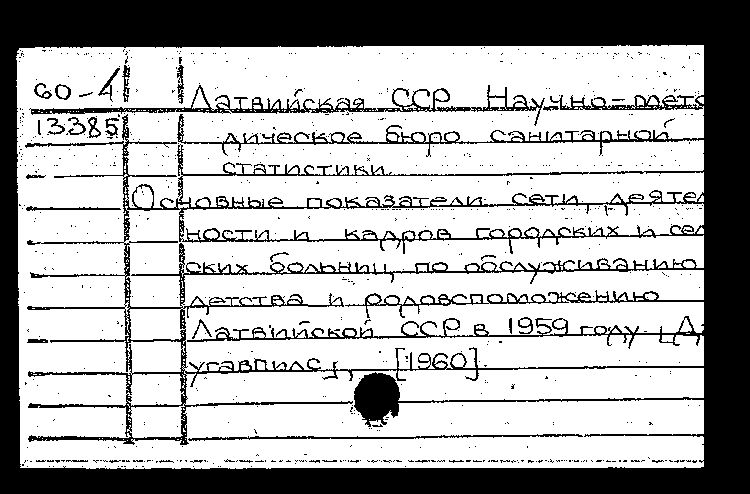 60-4 Латвийская ССР Научно-мето
13385 дическое бюро санитарной
статистики.
Основные показатели сети, деятел
ности и кадров городских и сел
ских больниц по обслуживанию
детства и родовспоможению
Латвийской ССР в 1959 году. [Да
угавпилс], [1960].